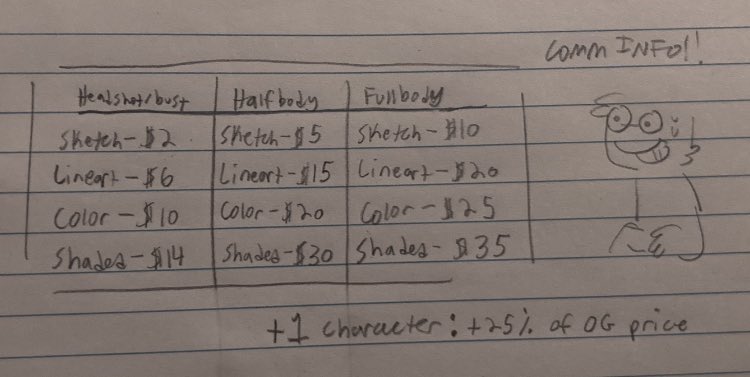 Comm INFO!!
Headshot/bust Halfbody Fullbody
Sketch-$2 Sketch-$5 Sketch-$10
Lineart-$6 Lineart-$15 Lineart-$20
Color-$10 Color-$20 Color-$25
Shades-$14 Shades-$30 Shades-$35
+1 character: +25% of OG price